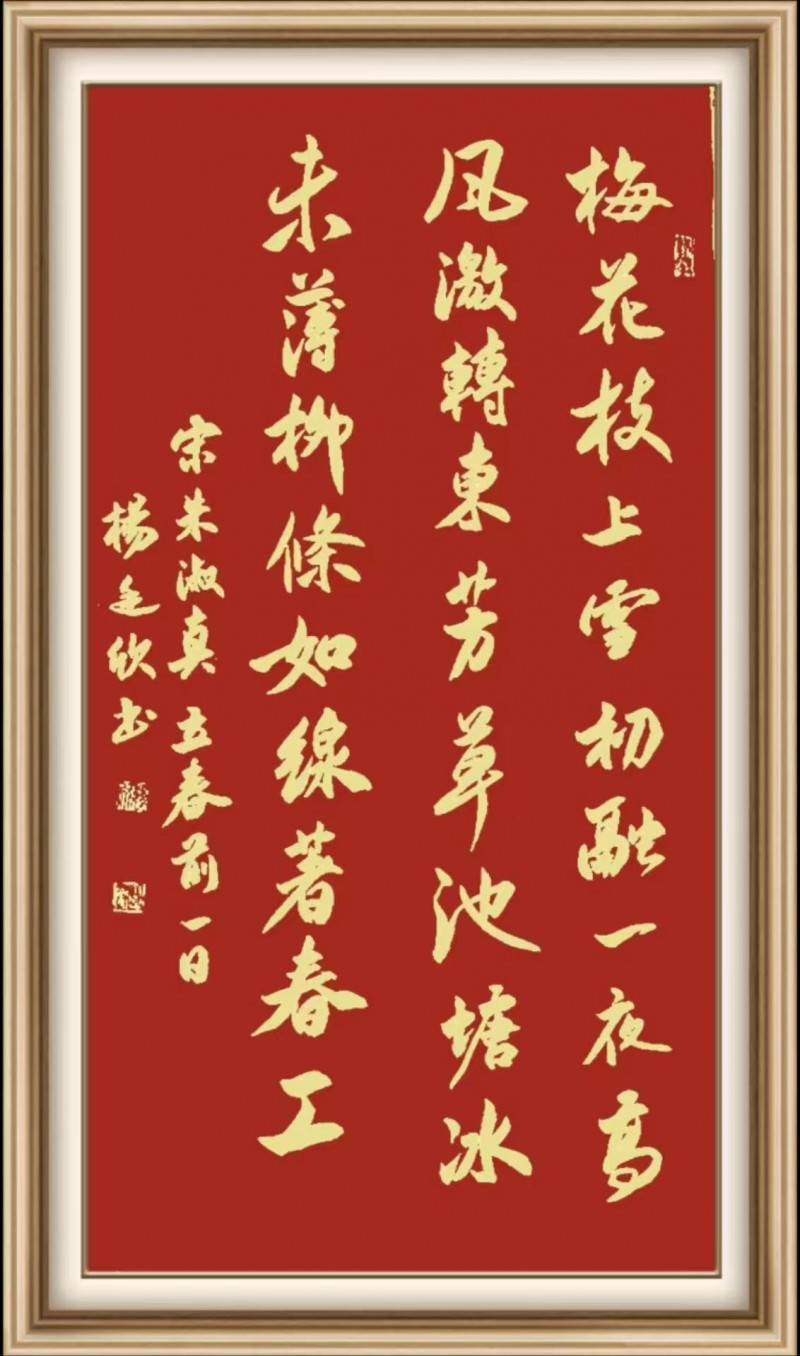 梅花枝上雪初融一夜高
風激轉東芳草池塘冰
未薄柳條如線著春工
宋朱淑真立春前一日
楊廷欣书